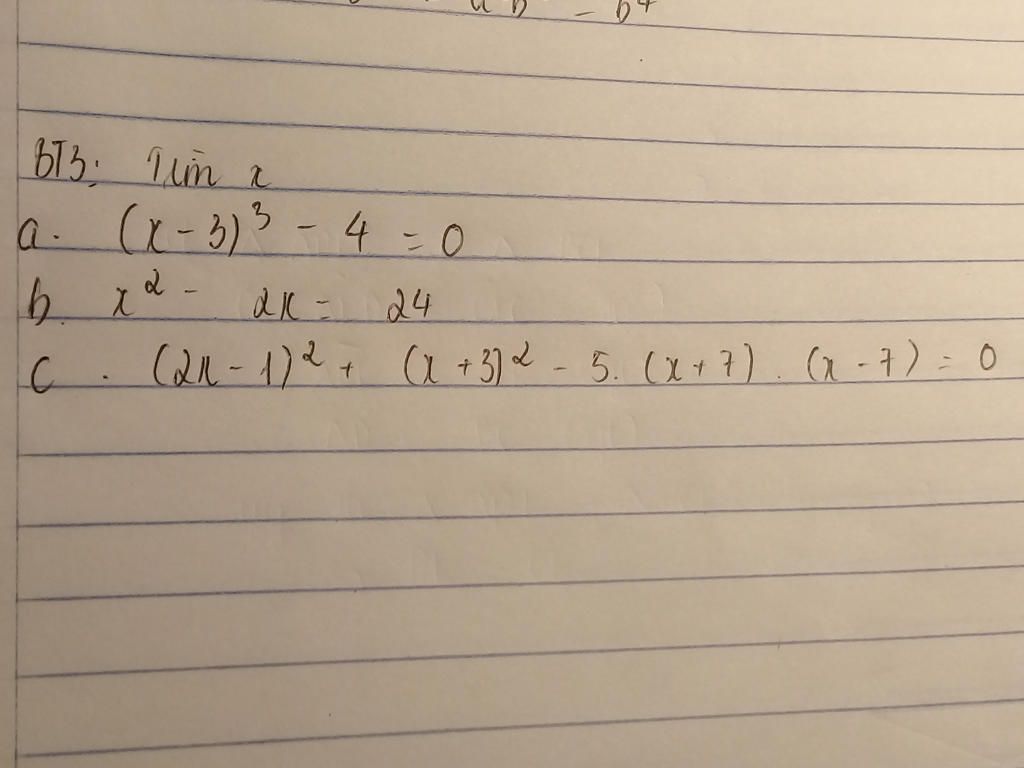 BT3: Tìm x
a. (x - 3)³ - 4 = 0
b. x² - 2x = 24
c. (2x - 1)² + (x + 3)² - 5. (x + 7). (x - 7) = 0